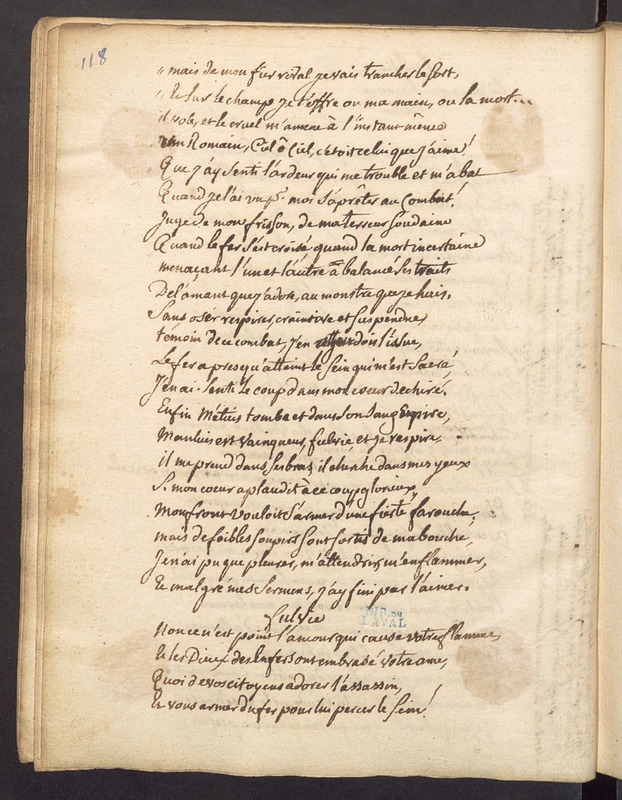 118
" mais de mon fier rival je vais trancher le sort,
" Et sur le champ je t'offre ou ma main, ou la mort...
il vole, et le cruel m'amene à l'instant même
un Romain, Ciel ô Ciel, c'etoit celui que j'aime!
Que j'ay senti l'ardeur qui me trouble et m'abat
Quand je l'ai vu pr. moi s'aprêter au Combat!
Juge de mon frisson, de ma terreur soudaine
Quand le fer s'est croisé quand la mort incertaine
menaçant l'un et l'autre a balancé ses traits
De l'amant que j'adore, au monstre que je hais.
Sans oser respirer, craintive et suspendue,
témoin de ce combat, j'en attendois l'issue,
Le fer a presqu'atteint le sein qui m'est sacré,
J'en ai senti le coup dans mon coeur dechiré.
Enfin Métius tombe et dans son sang Expire,
Manlius est vainqueur, fulvie, et je respire.
il me prend dans ses bras, il cherche dans mes yeux
Si mon coeur aplaudit à ce coup glorieux,
Mon front vouloit s'armer d'une fierté farouche,
mais de foibles soupirs sont sortis de ma bouche,
Je n'ai pu que pleurer, m'attendrir, m'enflammer,
Et malgré mes sermens, j'ay fini par l'aimer.
Fulvie
BIB. DE
LAVAL
Non ce n'est point l'amour qui cause votre flamme,
Et les Dieux des Enfers ont embrasé votre ame,
Quoi de vos citoyens adorer l'assassin,
Et vous armer du fer pour lui percer le sein!